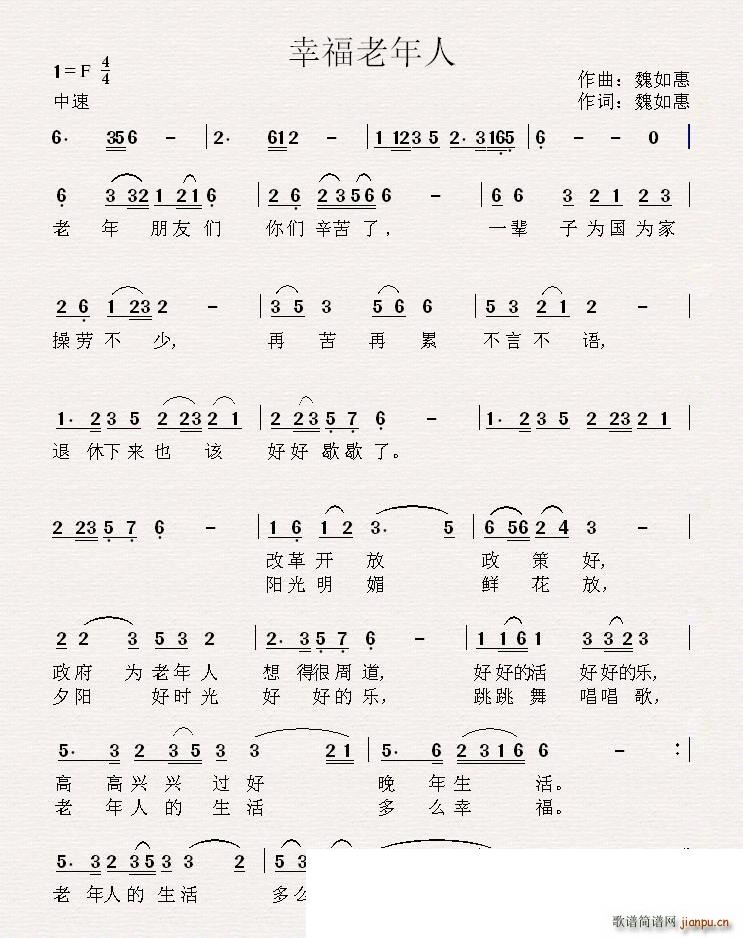 幸福老年人
1=F 4/4
作曲：魏如惠
中速
作词：魏如惠
6· 356 - | 2· 612 - | 1 123 5 2·3165 | 6 - - 0 |
6 3 32 1 21 6 | 2 6 2356 6 - | 6 6 3 2 1 2 3
老年朋友们 你们辛苦了， 一辈子为国为家
2 6 1 23 2 - | 3 5 3 5 6 6 | 5 3 2 1 2 - |
操劳不少， 再苦再累 不言不语，
1· 2 3 5 2 23 2 1 | 2 23 5 7 6 - | 1· 2 3 5 2 23 2 1
退休下来也该 好好歇歇了。
2 23 5 7 6 - | 1 6 1 2 3· 5 | 6 56 2 4 3 - |
改革开放 政策好，
阳光明媚 鲜花放，
2 2 3 5 3 2 | 2· 3 5 7 6 - | 1 16 1 3 32 3 |
政府为老年人 想得很周道， 好好的活 好好的乐，
夕阳 好时光 好好的乐， 跳跳舞 唱唱歌，
5· 3 2 35 3 21 | 5· 6 2316 6 - :
高高兴兴过好 晚年生活。
老年人的生活 多么幸福。
5· 3 2 35 3 2 |
老年人的生活 多么
歌谱简谱网 jianpu.cn